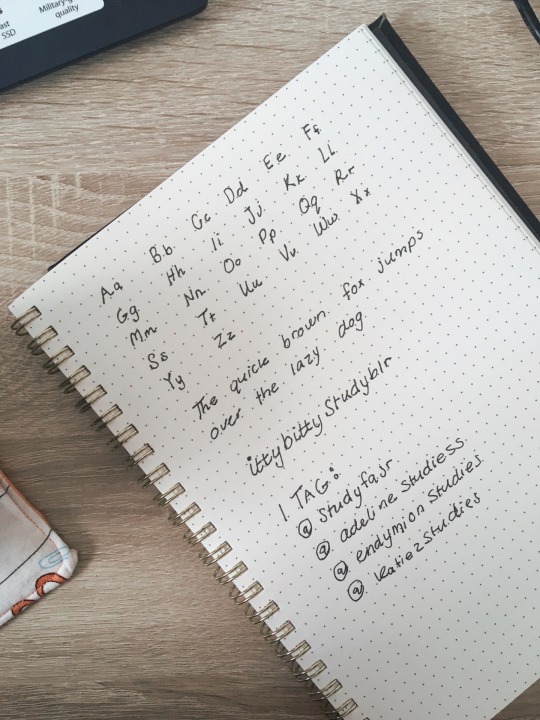 SSD
Military-g
quality
Aa Bb Cc Dd Ee Ff
Gg Hh Ii Jj Kk Ll
Mm Nn Oo Pp Qq Rr
Ss Tt Uu Vv Ww Xx
Yy Zz
The quick brown fox jumps
over the lazy dog
ittybittystudyblr
I TAG:
@ studyfasr
@ adeline studiess
@ endymion studies
@ katie2studies